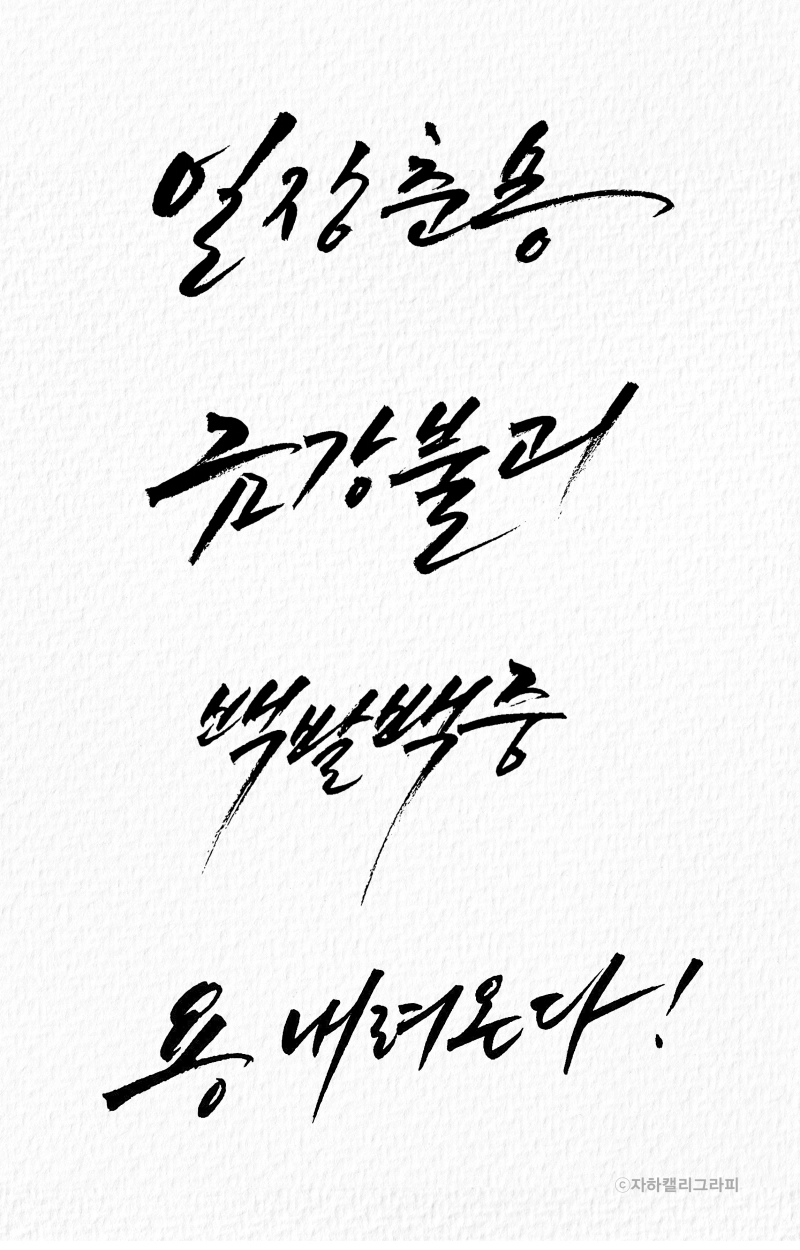 일장춘용
금강불괴
백발백중
용 내려온다!
ⓒ자하캘리그라피